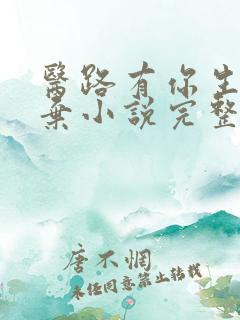 醫路有你生
棄小說完整
唐不惘
未经同意禁止转载